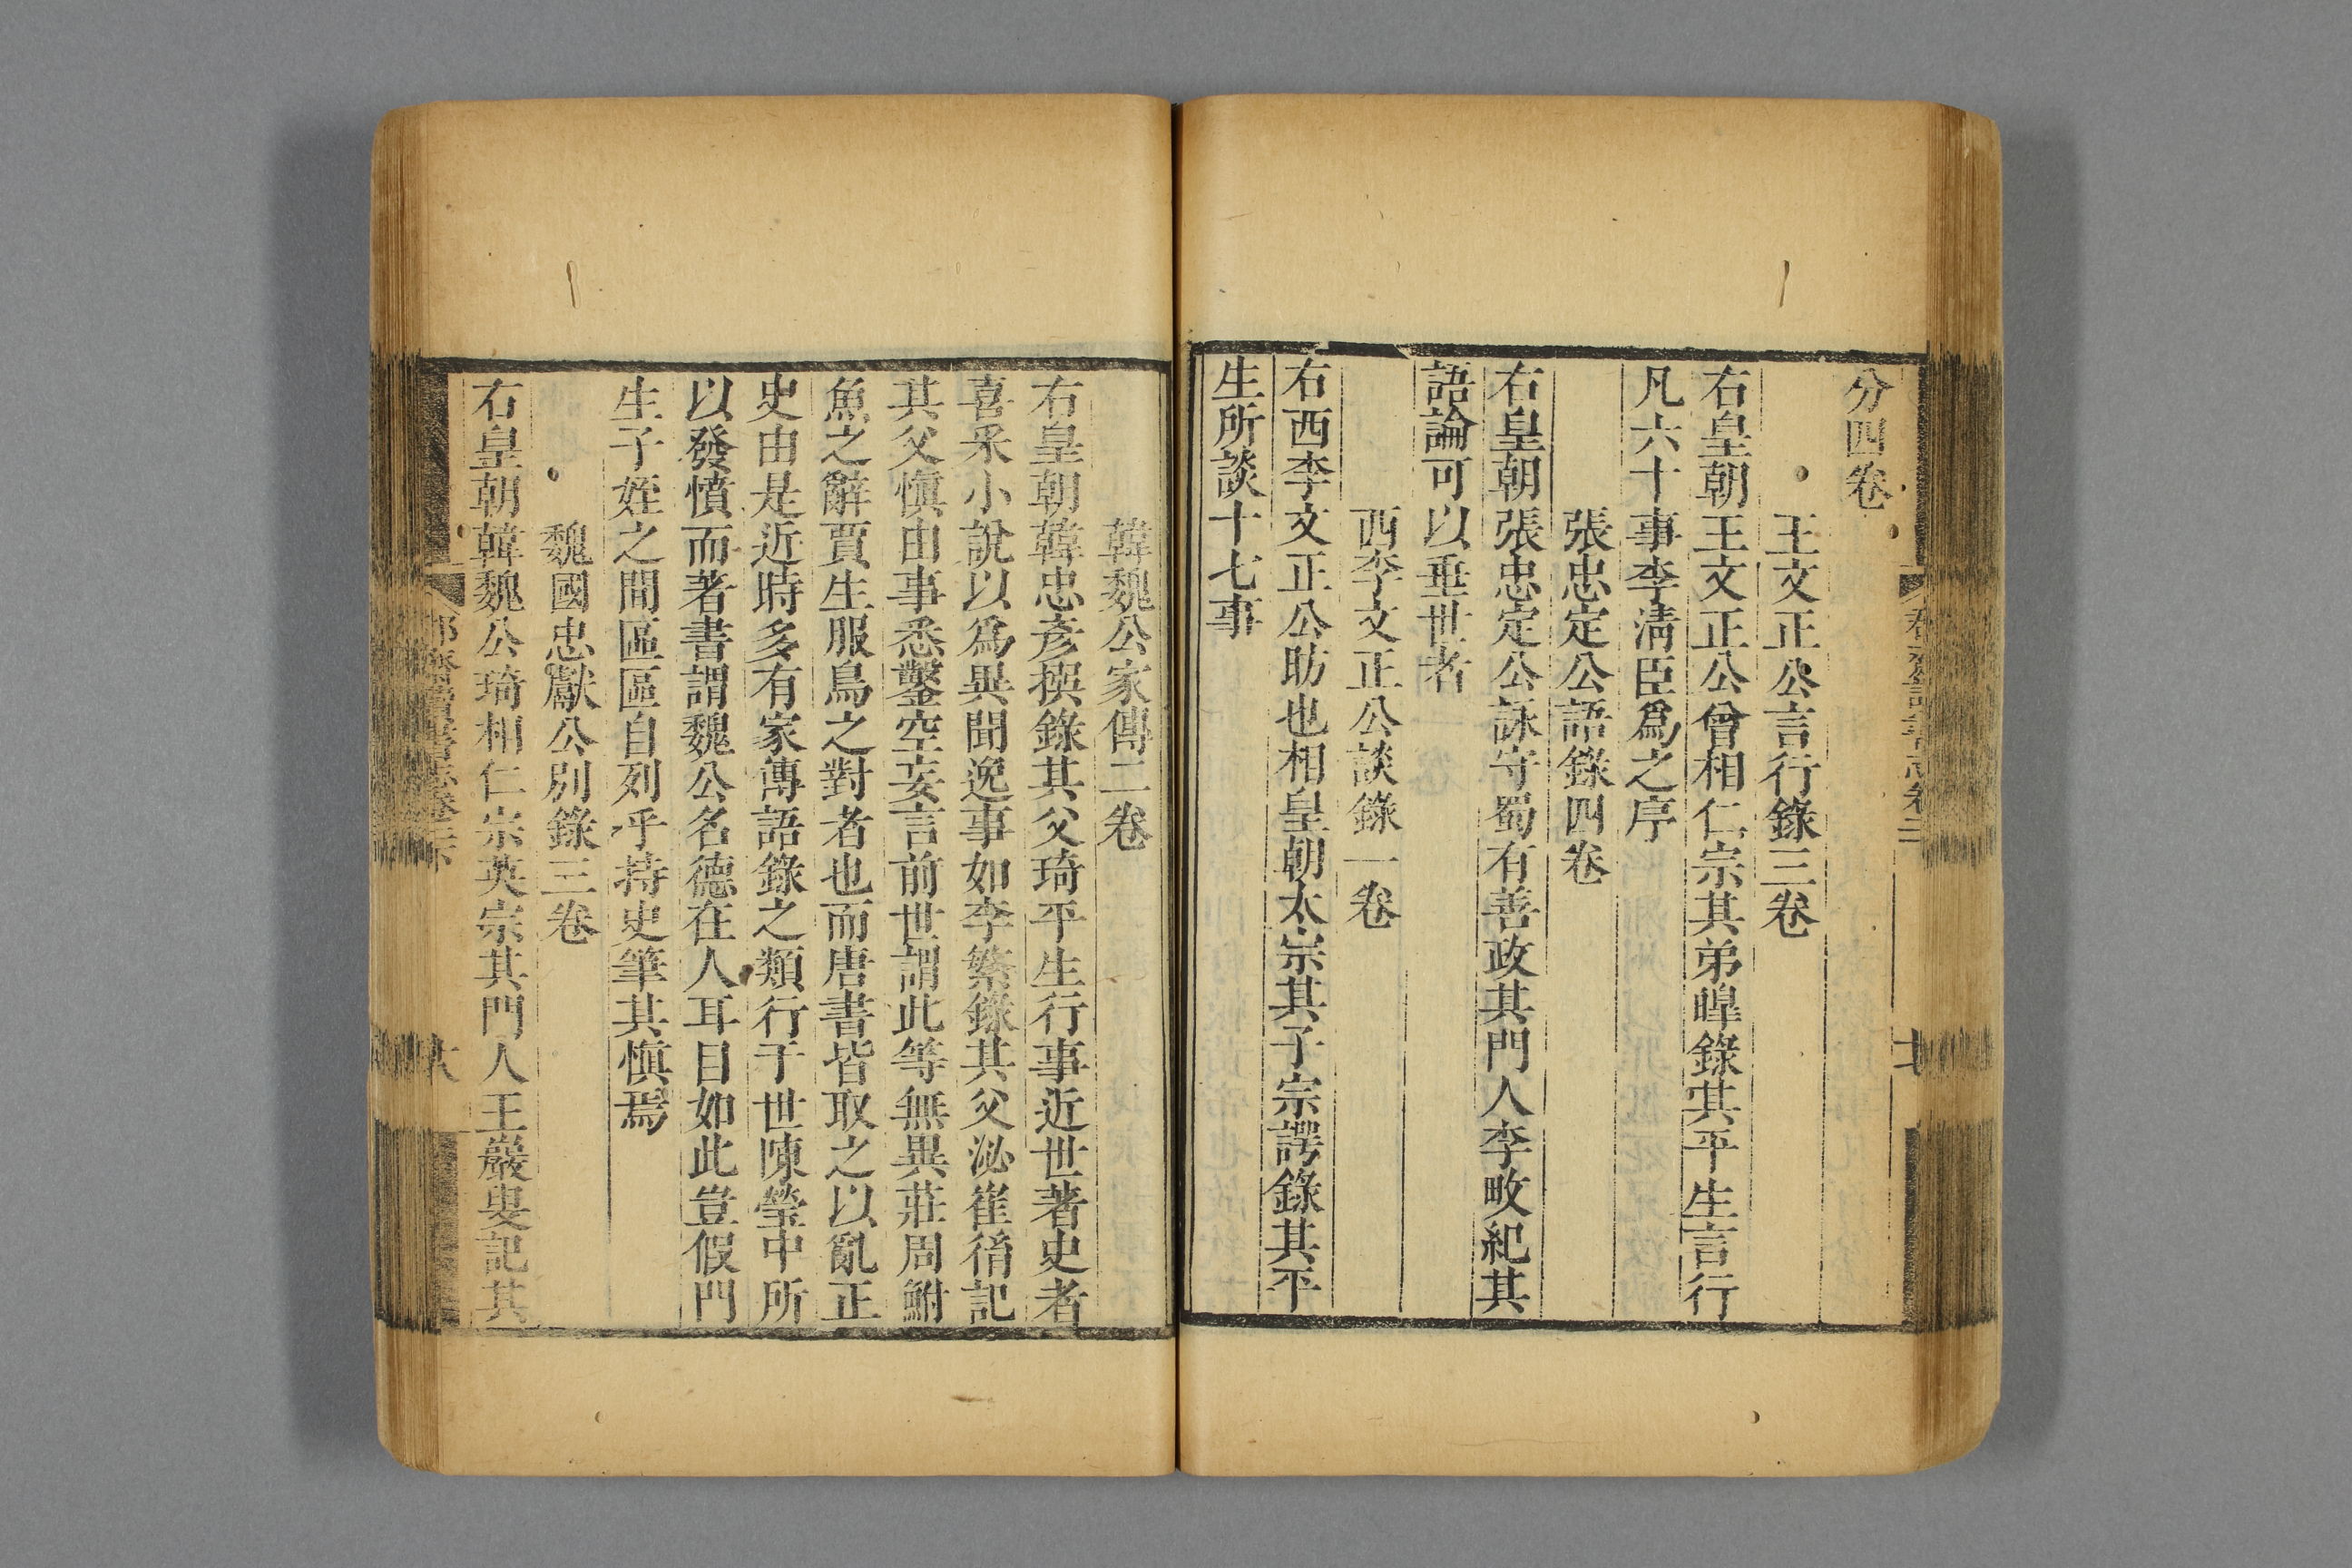 分四卷
王文正公言行錄三卷
右皇朝王文正公曾相仁宗其弟皥錄其平生言行
凡六十事李淸臣爲之序
張忠定公語錄四卷
右皇朝張忠定公詠守蜀有善政其門人李畋紀其
語論可以垂世者
西李文正公談錄一卷
右西李文正公昉也相皇朝太宗其子宗諤錄其平
生所談十七事
韓魏公家傳二卷
右皇朝韓忠彥撰錄其父琦平生行事近世著史者
喜釆小說以爲異聞逸事如李繁錄其父泌崔胤記
其父愼由事悉鑿空妄言前世謂此等無異莊周鮒
魚之辭賈生服鳥之對者也而唐書皆取之以亂正
史由是近時多有家傳語錄之類行于世陳瑩中所
以發憤而著書謂魏公名德在人耳目如此豈假門
生子姪之間區區自列乎持史筆其愼焉
魏國忠獻公別錄三卷
右皇朝韓魏公琦相仁宗英宗其門人王巖叟記其